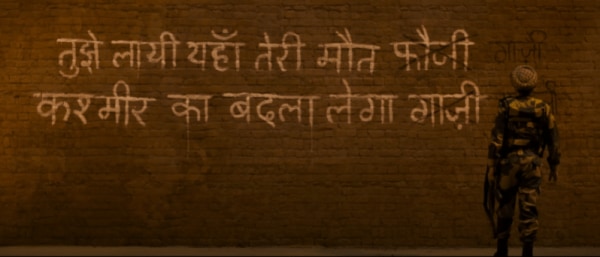 तुझे लायी यहाँ तेरी मौत फौजी गाज़ी
कश्मीर का बदला लेगा गाज़ी